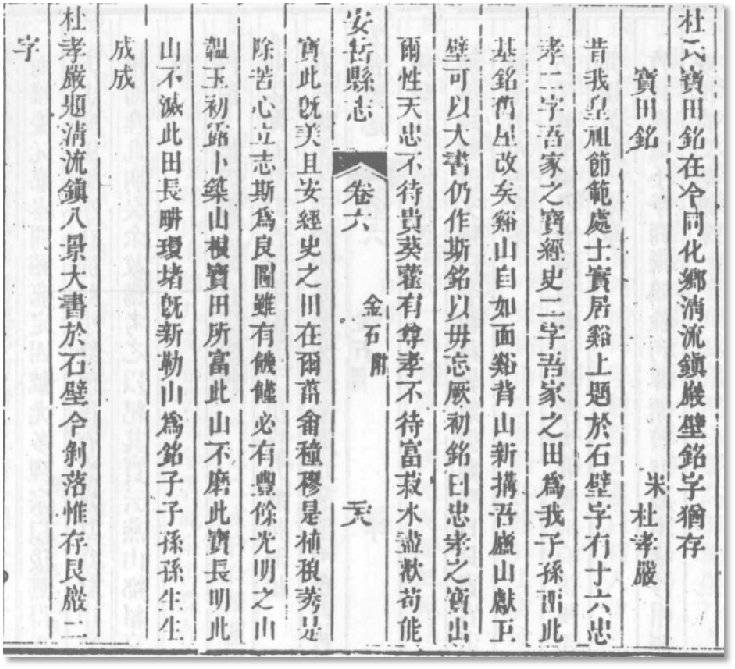 杜氏寶田銘在今同化鄉清流鎮巖壁銘字猶存
寶田銘 宋杜孝嚴
昔我皇祖節範處士實居谿上題於石壁字有十六忠
孝二字吾家之寶經史二字吾家之田為我子孫畱此
基銘舊屋改矣谿山自如面谿背山新搆吾廬山獻巨
壁可以大書仍作斯銘以毋忘厥初銘曰忠孝之寶出
爾性天忠不待貴葵藿有尊孝不待富菽水盡歡苟能
安岳縣志 卷六 金石附 六
寶此旣美且安經史之田在爾菑畬種穆是植稂莠是
除苦心立志斯為良圖雖有饑饉必有豐餘光明之山
韞玉初露卜築山根寶田所富此山不磨此寶長明此
山不滅此田長畊環堵旣新勒山為銘子子孫孫生生
成成
杜孝嚴題清流鎮八景大書於石壁今剝落惟存艮巖二
字